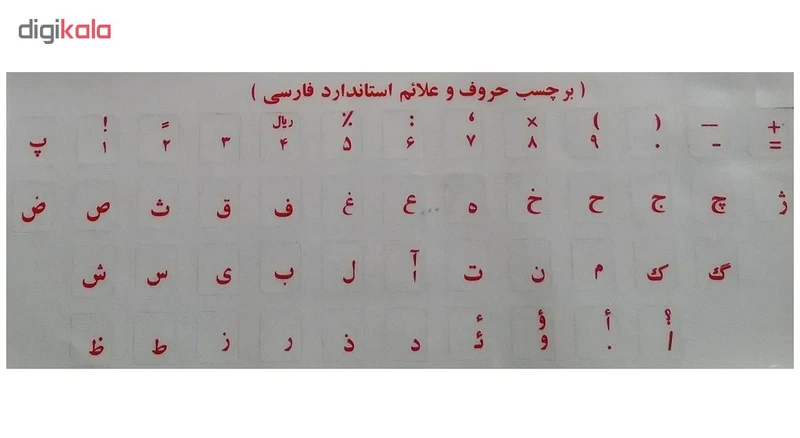 digikala
( برچسب حروف و علائم استاندارد فارسی )
! = ریال ٪ : ، × ) ( — +
پ ۱ ۲ ۳ ۴ ۵ ۶ ۷ ۸ ۹ ۰ - =
ض ص ث ق ف غ ع ه خ ح ج چ ژ
ش س ی ب ل آ ا ت ن م ک گ
ء ؤ أ ؟
ظ ط ز ر ذ د ئ و . /